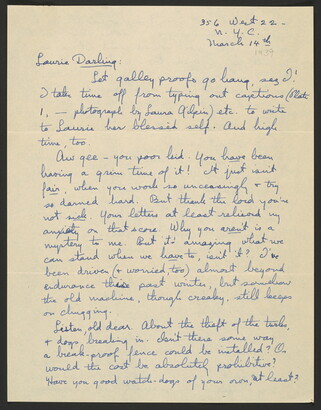 356 West 22 -
N. Y. C.
March 14th
1939
Laurie Darling:
Let galley proofs go hang, say I!
I take time off from typing out captions (Plate
1, — photograph by Laura Gilpin) etc. to write
to Laurie her blessed self. And high
time, too.
Aw gee - you poor kid. You have been
having a grim time of it! It just isn't
fair, when you work so unceasingly & try
so darned hard. But thank the lord you're
not sick. Your letters at least relieved my
anxiety on that score. Why you aren't is a
mystery to me. But it's amazing what we
can stand when we have to, isn't it? I've
been driven (& worried too) almost beyond
endurance this past winter, but somehow
the old machine, though creaky, still keeps
on chugging.
Listen, old dear. About the theft of the turks,
& dogs breaking in. Isn't there some way
a break-proof fence could be installed? Or
would the cost be absolutely prohibitive?
Have you good watch-dogs of your own, at least?